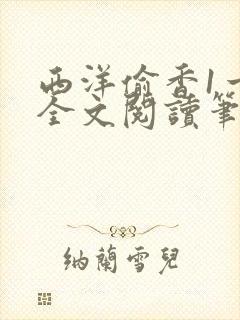 西洋偷香1一
全文閱讀筆
納蘭雪兒